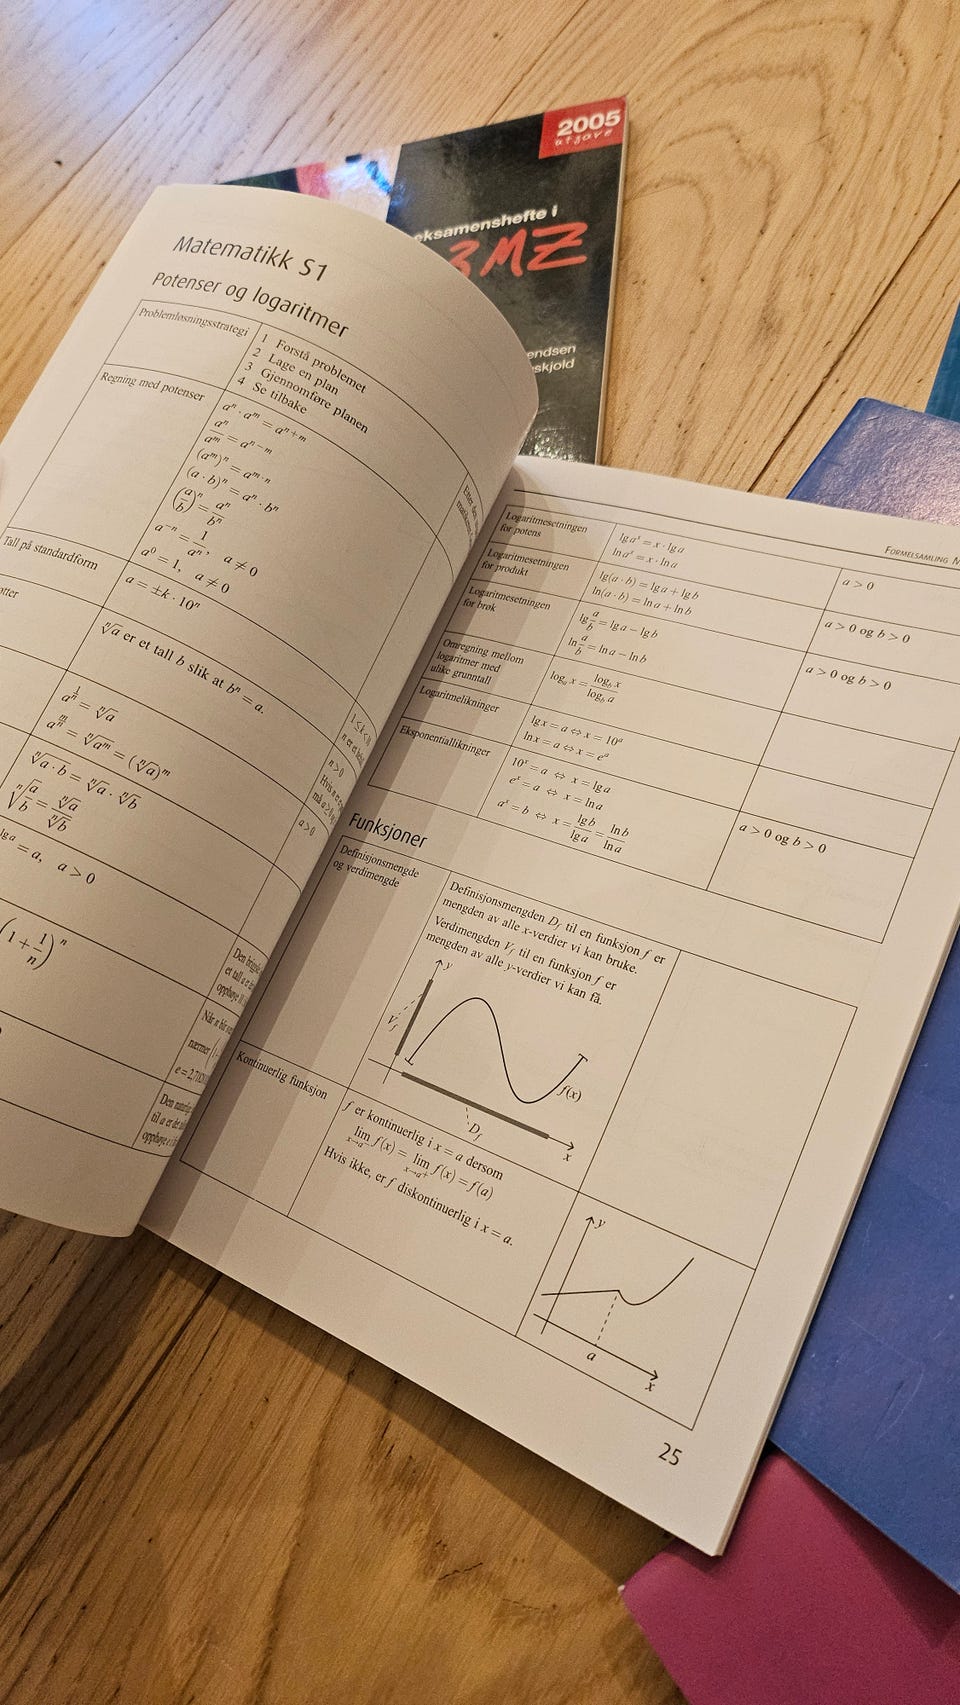 2005
utgave
eksamenshefte i
3MZ
endsen
eskjold
Matematikk S1
Potenser og logaritmer
Problemløsningsstrategi
1 Forstå problemet
2 Lage en plan
3 Gjennomføre planen
4 Se tilbake
Regning med potenser
aⁿ · aᵐ = aⁿ⁺ᵐ
aⁿ/aᵐ = aⁿ⁻ᵐ
(aᵐ)ⁿ = aᵐ·ⁿ
(a · b)ⁿ = aⁿ · bⁿ
(a/b)ⁿ = aⁿ/bⁿ
a⁻ⁿ = 1/aⁿ, a ≠ 0
a⁰ = 1, a ≠ 0
Tall på standardform
a = ±k · 10ⁿ
1 ≤ k < 10
otter
ⁿ√a er et tall b slik at bⁿ = a.
n > 0
a^(1/n) = ⁿ√a
a^(m/n) = ⁿ√(aᵐ) = (ⁿ√a)ᵐ
ⁿ√(a · b) = ⁿ√a · ⁿ√b
ⁿ√(a/b) = ⁿ√a/ⁿ√b
a > 0
lg a = a, a > 0
(1 + 1/n)ⁿ
Når n
nærmer
Formelsamling
Logaritmesetningen
for potens
lg aˣ = x · lg a
ln aˣ = x · ln a
a > 0
Logaritmesetningen
for produkt
lg(a · b) = lg a + lg b
ln(a · b) = ln a + ln b
a > 0 og b > 0
Logaritmesetningen
for brøk
lg a/b = lg a − lg b
ln a/b = ln a − ln b
a > 0 og b > 0
Omregning mellom
logaritmer med
ulike grunntall
logₐ x = log_b x / log_b a
Logaritmelikninger
lg x = a ⇔ x = 10ᵃ
ln x = a ⇔ x = eᵃ
Eksponentiallikninger
10ˣ = a ⇔ x = lg a
eˣ = a ⇔ x = ln a
aˣ = b ⇔ x = lg b/lg a = ln b/ln a
a > 0 og b > 0
Funksjoner
Definisjonsmengde
og verdimengde
Definisjonsmengden D_f til en funksjon f er
mengden av alle x-verdier vi kan bruke.
Verdimengden V_f til en funksjon f er
mengden av alle y-verdier vi kan få.
y
V_f
f(x)
D_f
x
Kontinuerlig funksjon
f er kontinuerlig i x = a dersom
lim x→a⁻ f(x) = lim x→a⁺ f(x) = f(a)
Hvis ikke, er f diskontinuerlig i x = a.
y
a
x
25